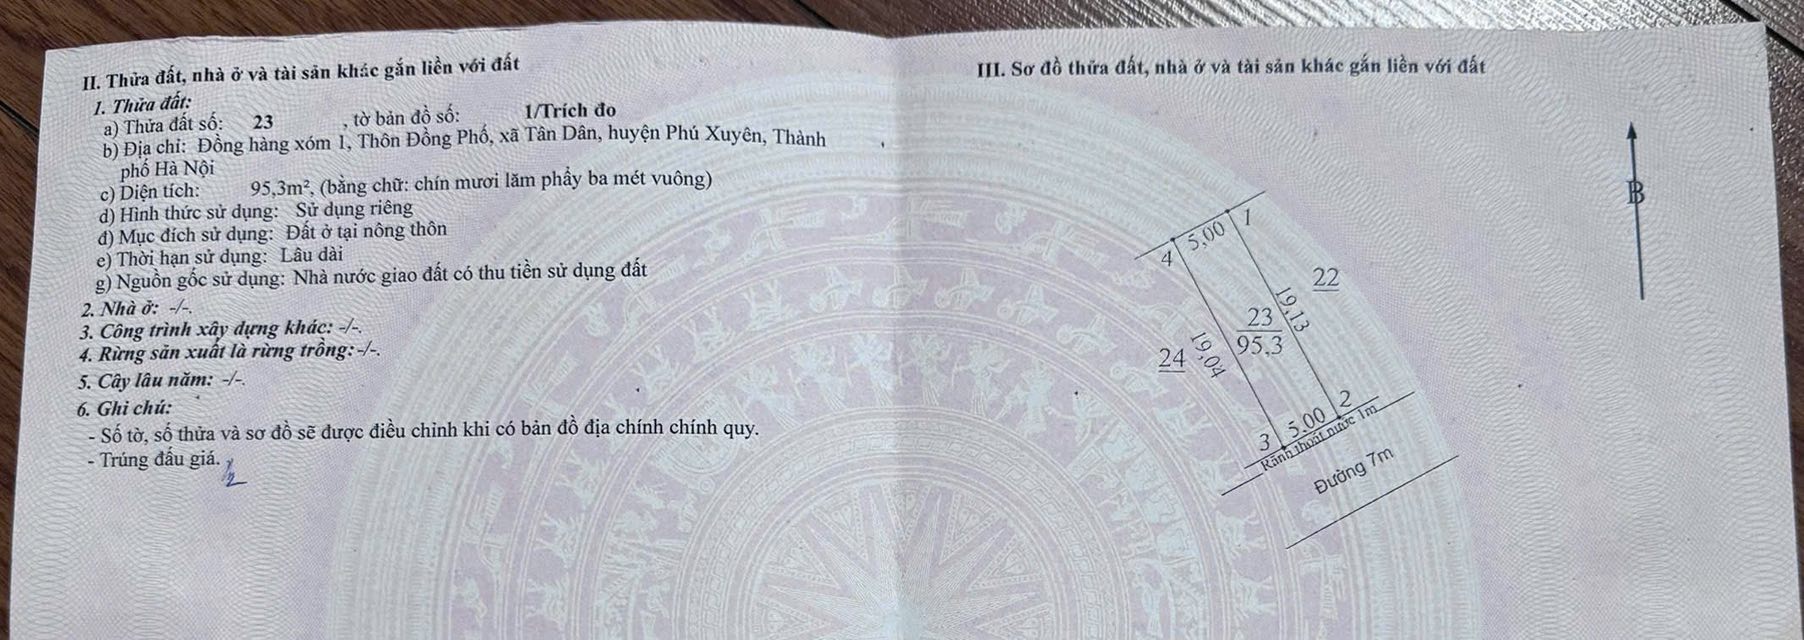 II. Thửa đất, nhà ở và tài sản khác gắn liền với đất
1. Thửa đất:
a) Thửa đất số: 23 , tờ bản đồ số: 1/Trích đo
b) Địa chỉ: Đồng hàng xóm 1, Thôn Đồng Phố, xã Tân Dân, huyện Phú Xuyên, Thành
phố Hà Nội
c) Diện tích: 95,3m², (bằng chữ: chín mươi lăm phẩy ba mét vuông)
d) Hình thức sử dụng: Sử dụng riêng
đ) Mục đích sử dụng: Đất ở tại nông thôn
e) Thời hạn sử dụng: Lâu dài
g) Nguồn gốc sử dụng: Nhà nước giao đất có thu tiền sử dụng đất
2. Nhà ở: -/-.
3. Công trình xây dựng khác: -/-.
4. Rừng sản xuất là rừng trồng: -/-.
5. Cây lâu năm: -/-.
6. Ghi chú:
- Số tờ, số thửa và sơ đồ sẽ được điều chỉnh khi có bản đồ địa chính chính quy.
- Trúng đấu giá.
III. Sơ đồ thửa đất, nhà ở và tài sản khác gắn liền với đất
B
1
5,00
4
22
19,13
23
95,3
19,04
24
2
5,00
3
Rãnh thoát nước 1m
Đường 7m